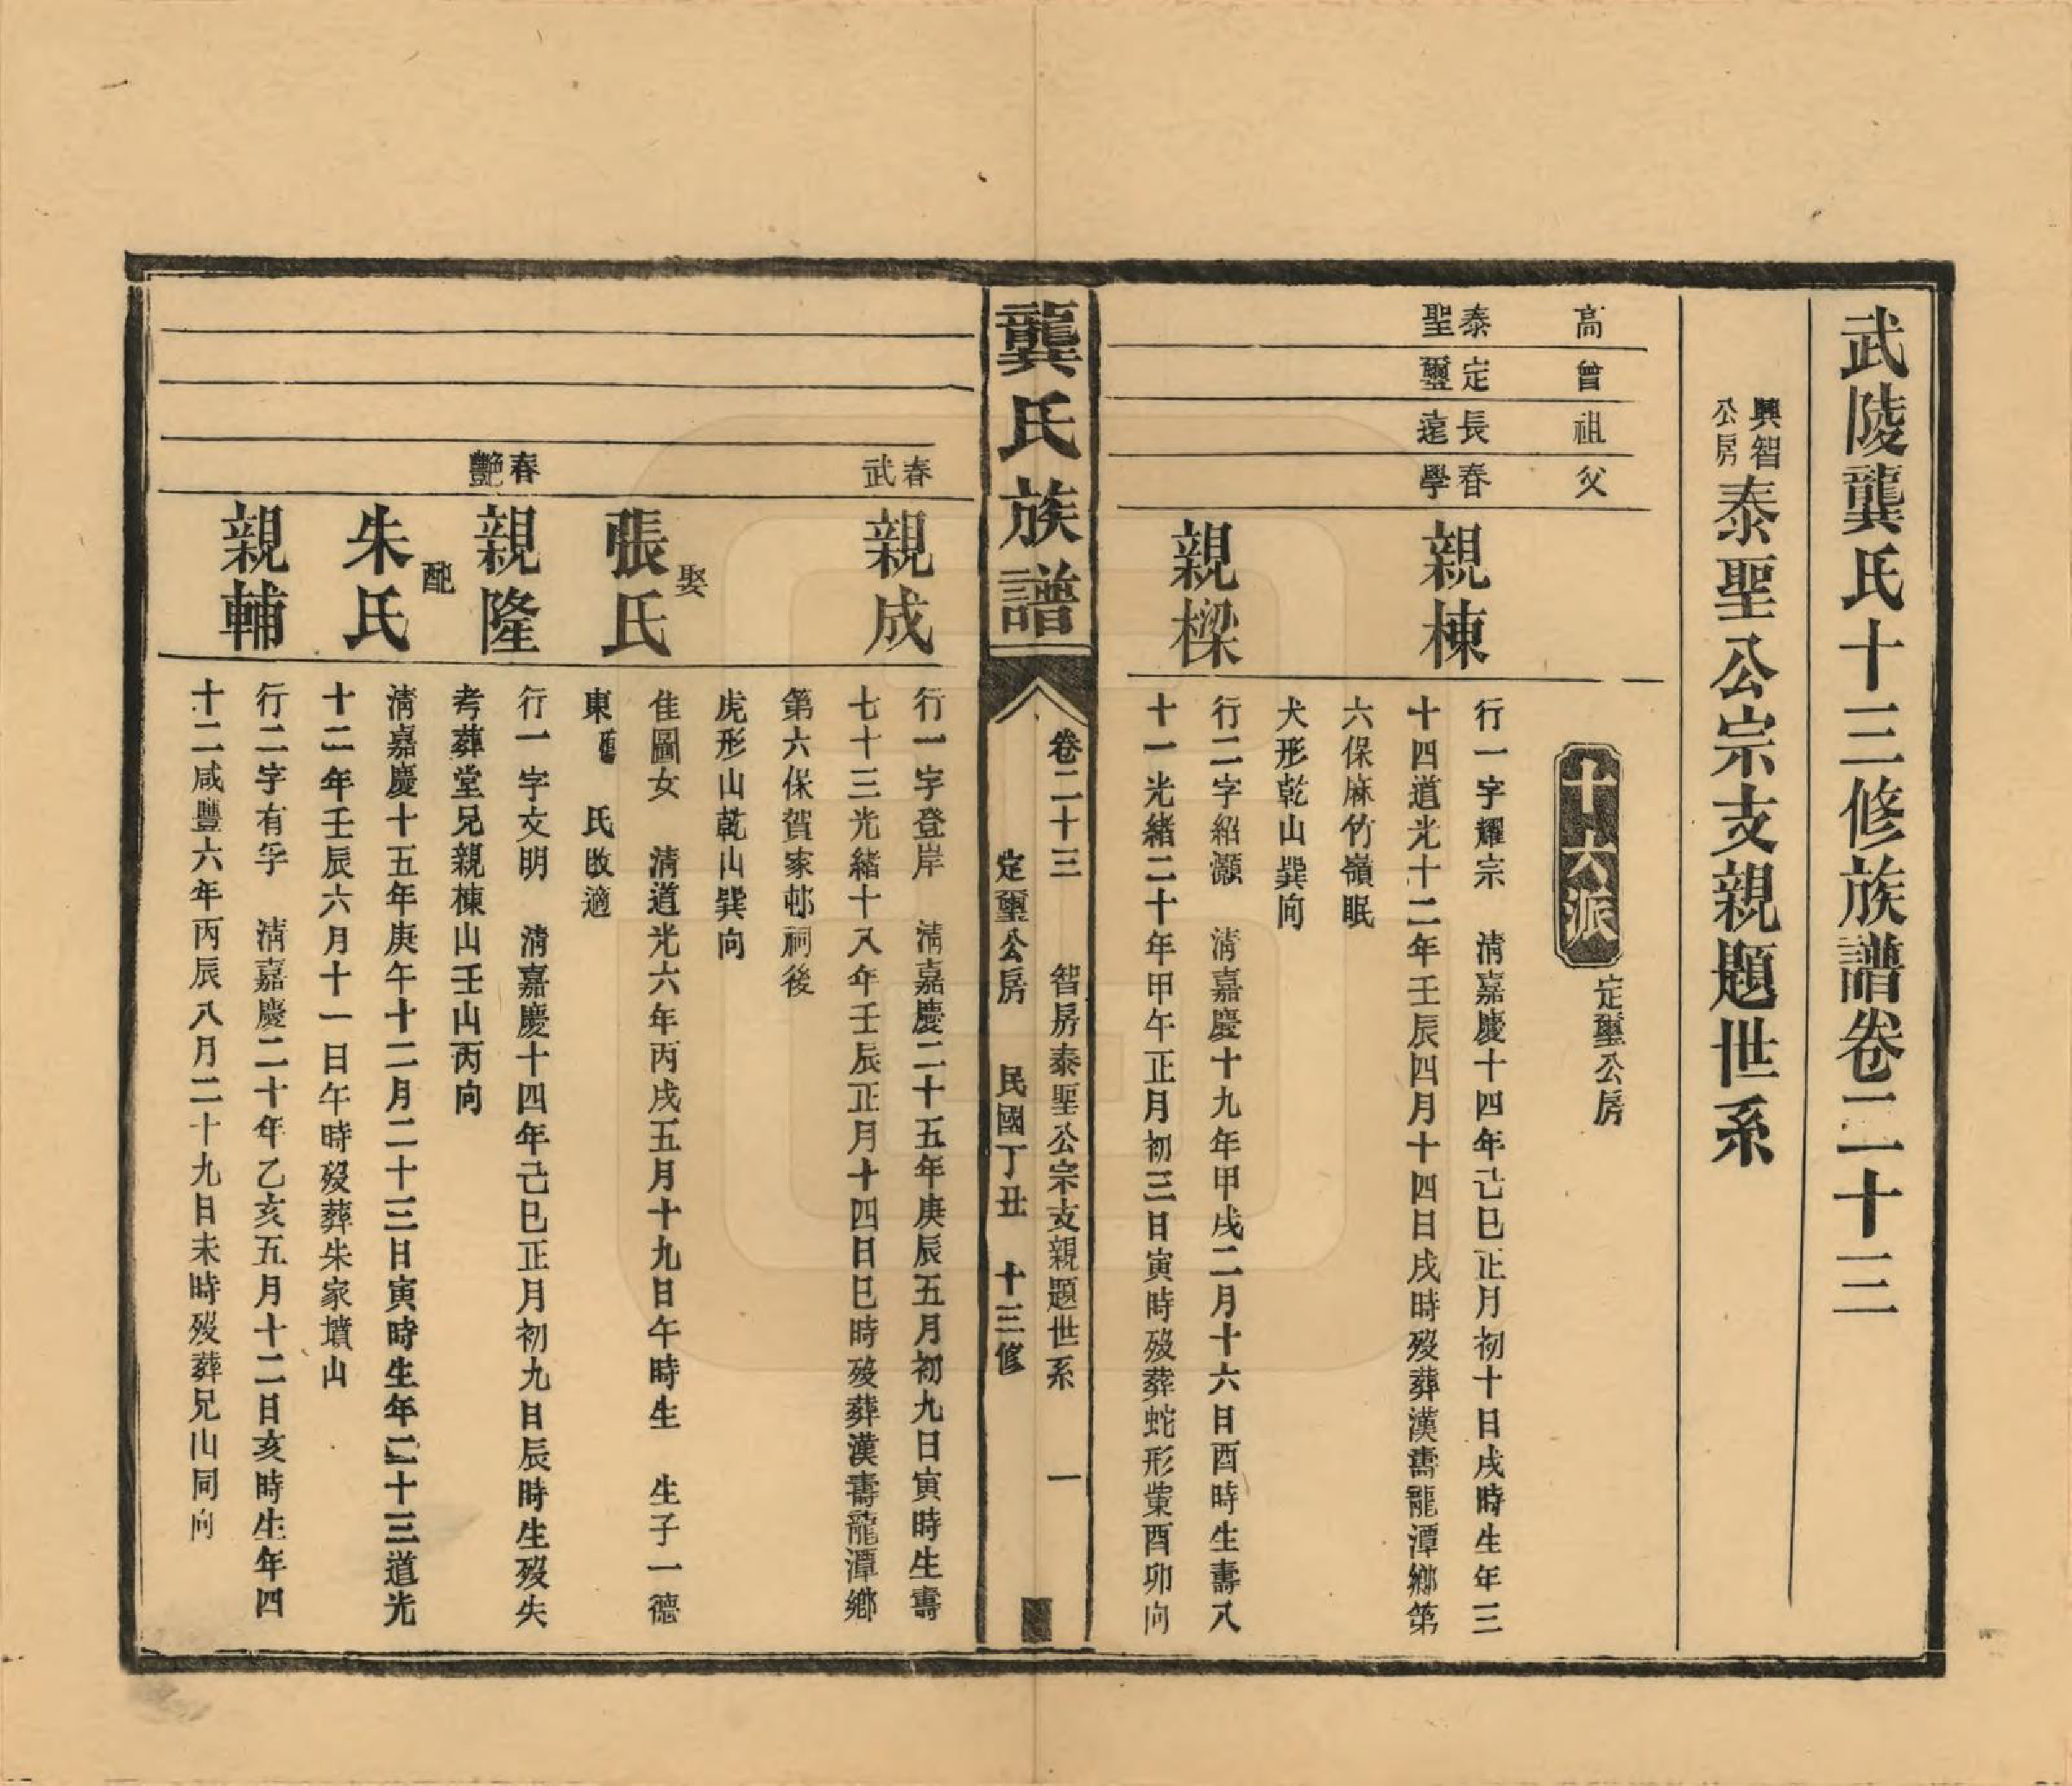 武陵龔氏十三修族譜卷二十三
興智公房泰聖公宗支親題世系
高
曾
祖
父
十六派
定璽公房
泰聖
定璽
長遠
春學
親棟
行一字耀宗　清嘉慶十四年己巳正月初十日戌時生年三
十四道光十二年壬辰四月十四日戌時歿葬漢壽龍潭鄉第
六保麻竹嶺眠
犬形乾山巽向
親樑
行二字紹灝　清嘉慶十九年甲戌二月十六日酉時生壽八
十一光緒二十年甲午正月初三日寅時歿葬蛇形業酉卯向
龔氏族譜
卷二十三　智房泰聖公宗支親題世系　一
定璽公房　民國丁丑　十三修
春武
親成
行一字登岸　清嘉慶二十五年庚辰五月初九日寅時生壽
七十三光緒十八年壬辰正月十四日巳時歿葬漢壽龍潭鄉
第六保賀家邨祠後
虎形山乾山巽向
娶
張氏
佳圖女　清道光六年丙戌五月十九日午時生　生子一德
東　氏改適
春艷
親隆
行一字文明　清嘉慶十四年己巳正月初九日辰時生歿失
考葬堂兄親棟山壬山丙向
配
朱氏
清嘉慶十五年庚午十二月二十三日寅時生年二十三道光
十二年壬辰六月十一日午時歿葬朱家墳山
親輔
行二字有孚　清嘉慶二十年乙亥五月十二日亥時生年四
十二咸豐六年丙辰八月二十九日未時歿葬兄山同向